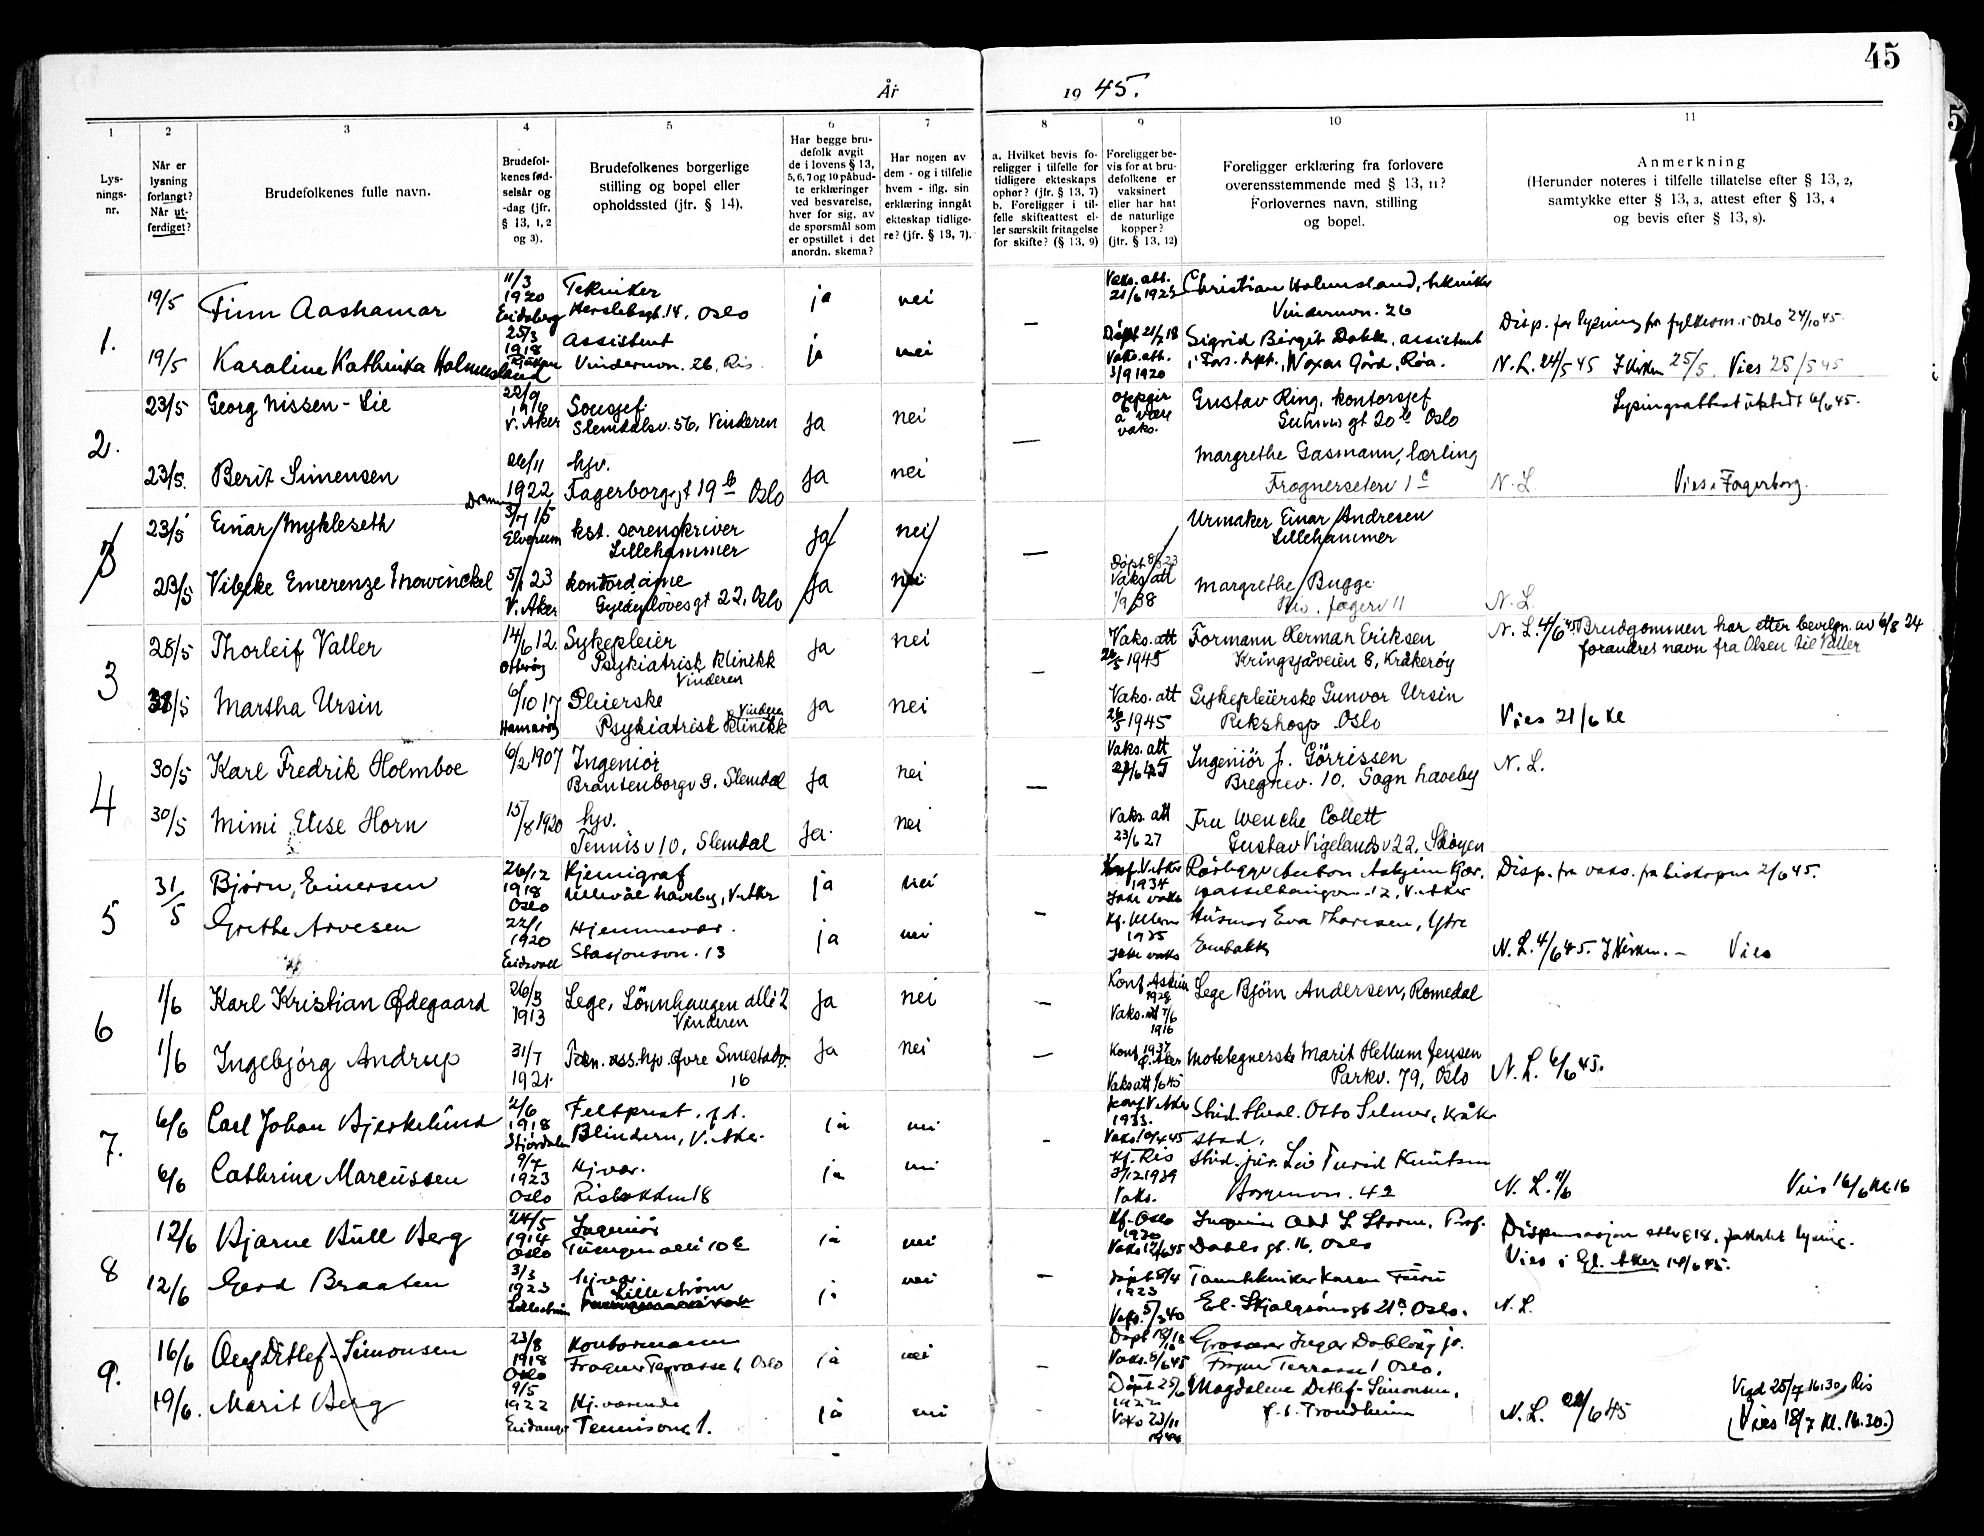 45
År 1945.
1
2
3
4
5
6
7
8
9
10
11
Lys-
nings-
nr.
Når er
lysning
forlangt?
Når ut-
ferdiget?
Brudefolkenes fulle navn.
Brudefol-
kenes fød-
selsår og
-dag (jfr.
§ 13, 1, 2
og 3).
Brudefolkenes borgerlige
stilling og bopel eller
opholdssted (jfr. § 14).
Har begge bru-
defolk avgit
de i lovens § 13,
5, 6, 7 og 10 påbud-
te erklæringer
ved besvarelse,
hver for sig, av
de spørsmål som
er opstillet i det
anordn. skema?
Har nogen av
dem - og i tilfelle
hvem - iflg. sin
erklæring inngått
ekteskap tidlige-
re? (jfr. § 13, 7).
a. Hvilket bevis fo-
religger i tilfelle for
tidligere ekteskaps
ophør? (jfr. § 13, 7)
b. Foreligger i til-
felle skifteattest el-
ler særskilt fritagelse
for skifte? (§ 13, 9)
Foreligger be-
vis for at bru-
defolkene er
vaksinert
eller har hat
de naturlige
kopper?
(jfr. § 13, 12)
Foreligger erklæring fra forlovere
overensstemmende med § 13, 11?
Forlovernes navn, stilling
og bopel.
Anmerkning
(Herunder noteres i tilfelle tillatelse efter § 13, 2,
samtykke efter § 13, 3, attest efter § 13, 4
og bevis efter § 13, 8).
1.
19/5 Finn Aashamar
11/3
1920
Eidsberg
Tekniker
Herslebsgt. 14, Oslo
ja nei —
Vaks. att.
Christian Holmsland, tekniker
Vindernvn. 26
Disp. for lysning fra fylkesm. i Oslo
19/5 Karoline Kathinka Holmesland
25/3
1918
Assistent
Vindernvn. 26, Ris.
ja nei
Døpt 21/7 18
Vaks. att.
3/9 1920
Sigrid Birgit Dokk, assistent
i Fors. dept., Voxar Gård, Røa.
N. L. 24/5 45 I kirken 25/5. Vies 25/5 45
2.
23/5 Georg Nissen-Lie
22/9
V. Aker
Sousjef
Slemdalsv. 56, Vinderen
ja nei —
oppgir
å være
vaks.
Gustav Ring, kontorsjef
Suhmsgt 20 b Oslo
Lysingsattest utstedt 6/6 45.
23/5. Berit Simensen
26/11
1922
Drammen
hjv.
Fagerborggt 19 b Oslo
ja nei
Margrethe Gasmann, lærling
Frognerseterv 1 c
N. L
Vies i Fagerborg.
3
23/5 Einar Mykleseth
3/7 15
Elverum
kst. sorenskriver
Lillehammer
ja nei —
Urmaker Einar Andresen
Lillehammer
23/5 Vibeke Emerenze Mowinckel
5/1 23
V. Aker
kontordame
Gyldenløvesgt 22, Oslo
ja nei
Vaks att
1/9 38
Margrethe Bugge
N. L.
3
28/5 Thorleif Valler
14/6 12.
Sykepleier
Psykiatrisk klinikk
Vinderen
ja nei —
Vaks. att
1945
Formann Herman Eriksen
Kringsjåveien 8, Kråkerøy
N. L. 4/6 45 Brudgommen har etter bevilgn. av 6/8 24
forandret navn fra Olsen til Valler
/5 Martha Ursin
6/10 17
Hamarøy
Pleierske
Psykiatrisk klinikk
Vinderen
ja nei
Vaks. att
1945
Sykepleierske Gunvor Ursin
Rikshosp Oslo
Vies 21/6 kl
4
30/5 Karl Fredrik Holmboe
6/2 1907
Ingeniør
Brantenborgv 3. Slemdal
ja nei —
Vaks. att
Ingeniør J. Görrissen
Bregnev. 10. Sogn haveby
N. L.
30/5 Mimi Elise Horn
15/8 1920
hjv.
Tennisv 10, Slemdal
ja. nei
Vaks. att
23/6 27
Fru Wenche Collett
Gustav Vigelandsv 22, Skøyen
5
31/5
Bjørn Einersen
26/12
1918
Oslo
Kjemigraf
Ullevål haveby, V. Aker
ja nei —
Konf V. Aker
1934
Ikke vaks
Disp. fra vaks. fra biskopen 2/6 45.
Grethe Arvesen
22/1
1920
Eidsvoll
Hjemmevær.
Stasjonsvn. 13
ja nei
1935
Ikke vaks
Husmor Eva Thoresen, Ytre
Enebakk
N. L. 4/6 45. I kirken. — Vies
6
1/6 Karl Kristian Ødegaard
26/3
1913
Lege, Lönnhaugen allé 2
Vinderen
ja nei —
Konf Askim
1928
Vaks. att
1916
Lege Björn Andersen, Romedal
1/6 Ingebjörg Andrup
31/7
1921.
hjv. Øvre Smestadv.
16
ja nei —
Konf 1937
Motetegnerske Marit Hellum Jensen
Parkv. 79, Oslo
N. L. 6/6 45.
7.
6/6 Carl Johan Bjerkelund
2/6
1918
Stjørdalen
Feltprest. f. t.
Blindern, V. Aker.
ja nei -
Konf V. Aker
1933.
Stud. theol. Otto Selmer, Kråk
stad.
6/6 Cathrine Marcussen
9/7
1923
Oslo
Hjvær.
Risbakken 18
ja nei
Kf. Ris
3/12 1939
Vaks.
Stud. jur. Liv Turid Knutsen
42
N. L. 11/6
Vies 16/6 kl. 16
8
12/6 Bjarne Bull Berg
24/5
1914
Oslo
Ingeniør
Tuengen allé 10 b
ja nei
Kf. Oslo
Vaks 12/6 45
Ingeniør Odd S. Storm, Prof.
Dahls gt. 16, Oslo
Dispensasjon etter § 18, lysing.
Vies i Gl. Aker 14/6 45.
12/6 Gerd Braaten
3/3
1923
Lillestrøm
hjvær.
Lillestrøm
ja nei —
Døpt 8/4
1923
Tanntekniker Karen Furu
Erl. Skjalgsønsgt 21 a. Oslo.
N. L.
9.
16/6 Oluf Ditlef-Simonsen
23/8
1918
Oslo
Kontormann
Frogner Terrasse 1, Oslo
ja nei —
Vaks. 8/6 45
Grosserer Ingar Dobloug jr.
Frogner Terrasse 1 Oslo.
19/6. Marit Berg
9/5
1922
Eidanger
Hj.værende
Tennisvn. 1.
ja nei -
Døpt 25/6
1922
Magdalene Ditlef-Simonsen,
f. t. Trondheim
N. L. /6 45
Vigd 25/7 16.30, Ris
(Vies 18/7 kl. 16.30.)